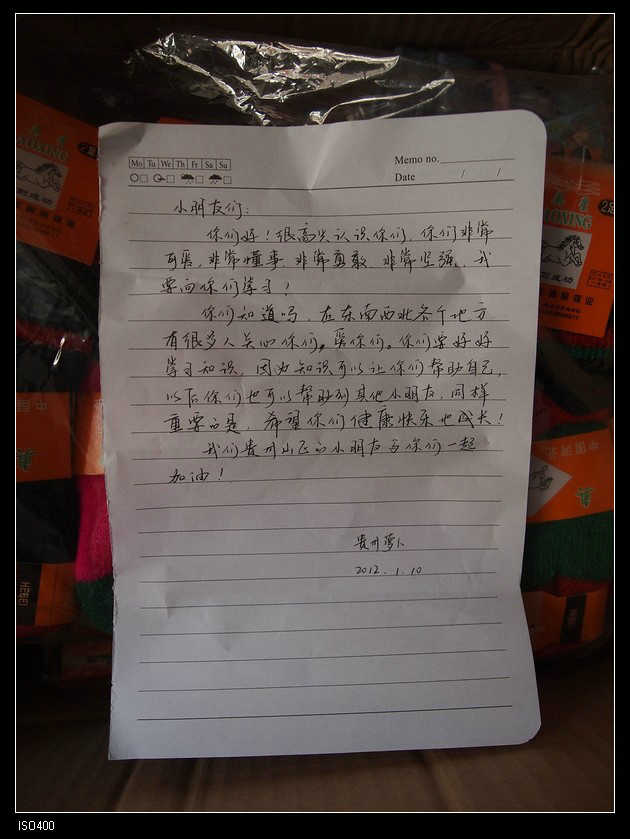 Mo Tu We Th Fr Sa Su
Memo no.
Date / /
小朋友们:
你们好!很高兴认识你们,你们非常
可爱,非常懂事,非常勇敢,非常坚强,我
要向你们学习!
你们知道吗,在东南西北各个地方
有很多人关心你们,爱你们。你们要好好
学习知识,因为知识可以让你们帮助自己,
以后你们也可以帮助到其他小朋友,同样
重要的是,希望你们健康快乐地成长!
我们贵州山区的小朋友与你们一起
加油!
贵州萝卜
2012.1.10
ISO400